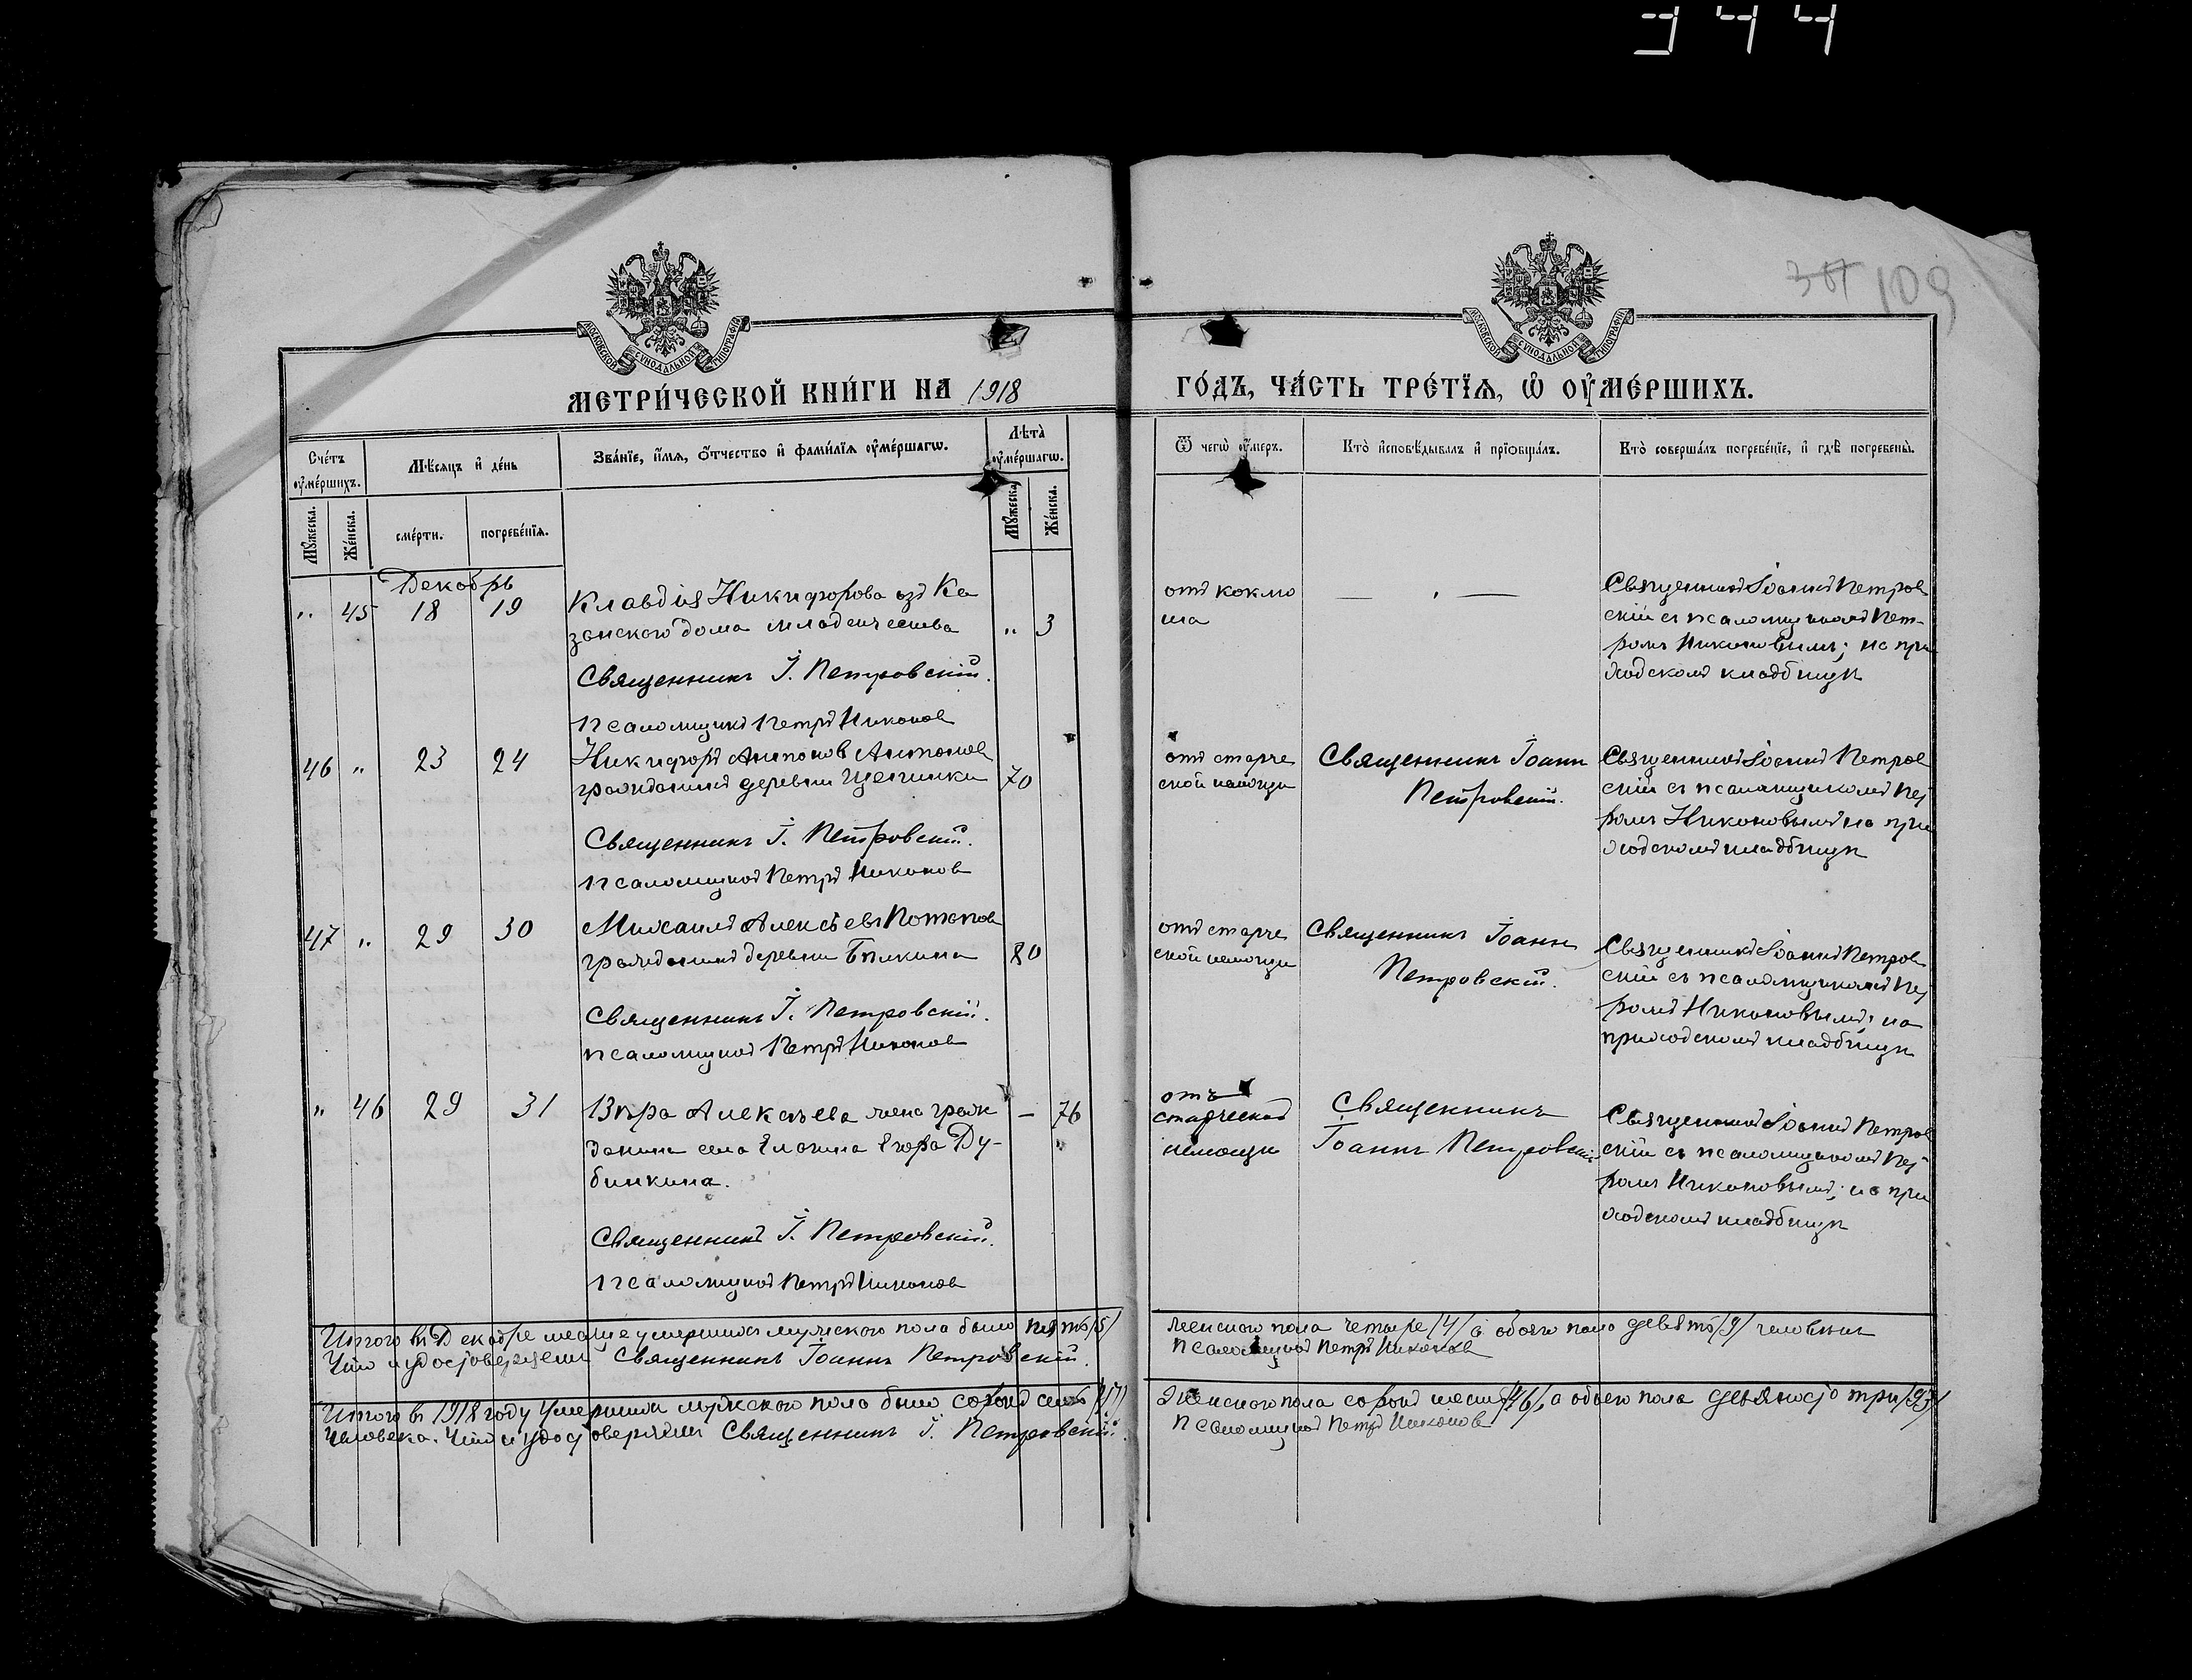 344
307 109
МОСКОВСКОЙ СѴНОДАЛЬНОЙ ТИПОГРАФІИ
МОСКОВСКОЙ СѴНОДАЛЬНОЙ ТИПОГРАФІИ
МЕТРИ́ЧЕСКОЙ КНИ́ГИ НА 1918
ГО́ДЪ, ЧА́СТЬ ТРЕ́ТЇѦ, Ѽ ОУ҆МЕ́РШИХЪ.
Сче́тъ оу҆ме́ршихъ.
Мѣ́сѧцъ и҆ де́нь
Зва́нїе, и҆́мѧ, ѻ҆́тчество и҆ фами́лїѧ оу҆ме́ршагѡ.
Лѣ́та оу҆ме́ршагѡ.
Ѿ чегѡ̀ оу҆́меръ.
Кто̀ и҆сповѣ́дывалъ и҆ прїѡбща́лъ.
Кто̀ соверша́лъ погребе́нїе, и҆ гдѣ̀ погребены̀.
Мꙋ́жеска.
Же́нска.
сме́рти.
погребе́нїѧ.
Мꙋ́жеска.
Же́нска.
Декабрь
" 45 18 19
Клавдія Никифорова изъ Ка
занскаго дома младенчества " 3
Священникъ І. Петровскій.
Псаломщикъ Петръ Никонов
отъ коклю
ша
— " —
Священникъ Іоаннъ Петров
скій съ псаломщикомъ Пет-
ромъ Никоновымъ; на при
ходскомъ кладбищѣ
46 " 23 24
Никифоръ Антоновъ Антонов
гражданинъ деревни 70
Священникъ І. Петровскій.
псаломщикъ Петръ Никонов
отъ старче
ской немощи
Священникъ Іоаннъ
Петровскій.
Священникъ Іоаннъ Петров
скій съ псаломщикомъ Пет
ромъ Никоновымъ на при
ходскомъ кладбищѣ
47 " 29 30
Михаилъ Алексѣевъ Потапов
гражданинъ деревни Бѣлкина 80
Священникъ І. Петровскій.
псаломщикъ Петръ Никонов
отъ старче
ской немощи
Священникъ Іоаннъ
Петровскій.
Священникъ Іоаннъ Петров
скій съ псаломщикомъ Пет
ромъ Никоновымъ; на
приходскомъ кладбищѣ
" 46 29 31
Вѣра Алексѣева жена граж — 76
данина села Елагина Егора Ду-
бинкина.
Священникъ І. Петровскій.
Псаломщикъ Петръ Никонов
отъ
старческой
немощи
Священникъ
Іоаннъ Петровскій
Священникъ Іоаннъ Петров
скій съ псаломщикомъ Пет
ромъ Никоновымъ; на при
ходскомъ кладбищѣ
Итого въ Декабре месяце умершихъ мужского пола было пять /5/
женского пола четыре /4/ а обоего пола девять /9/ человекъ
Что и удостоверяемъ Священникъ Іоаннъ Петровскій.
Псаломщикъ Петръ Никонов
Итого въ 1918 году Умершихъ мужского пола было сорокъ семь /47/
Женского пола сорокъ шесть /46/, а обоего пола девяносто три /93/
Человека. Что и удостоверяемъ Священникъ І. Петровскій.
Псаломщикъ Петръ Никонов